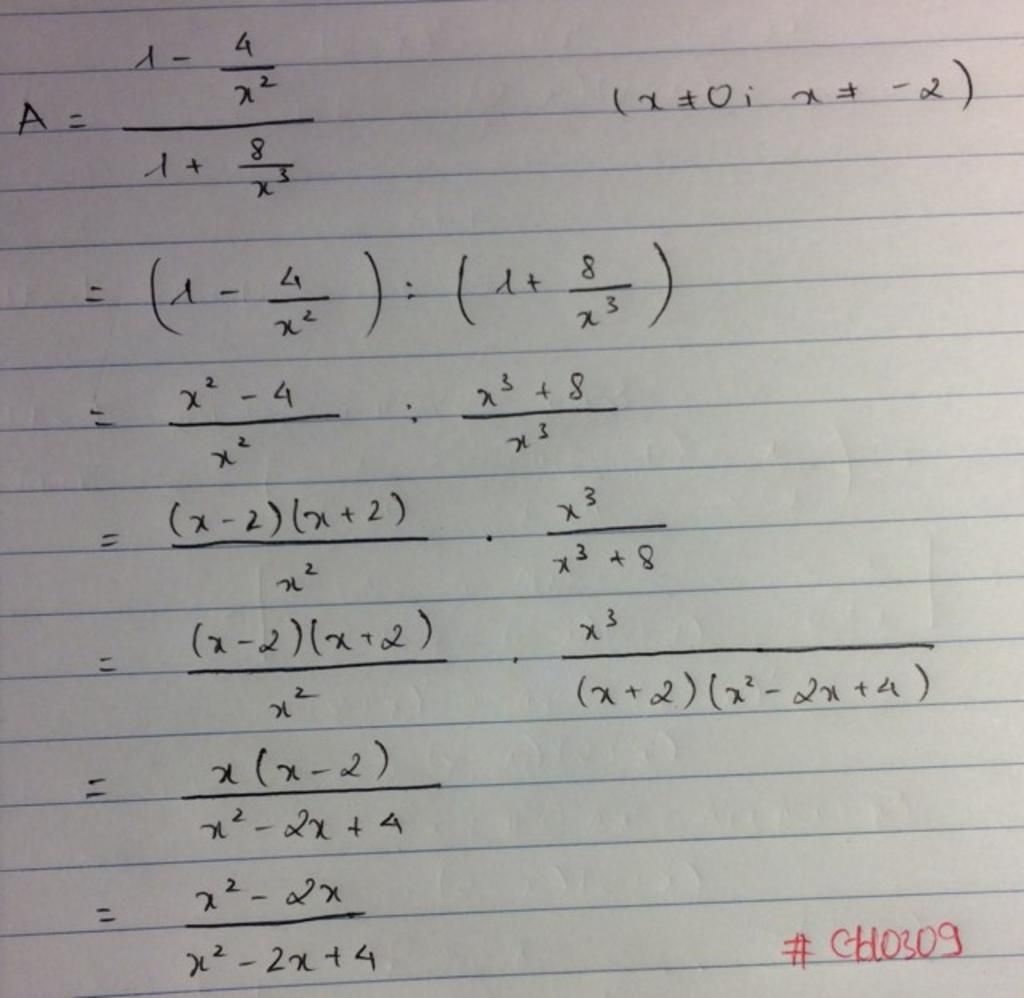 A = (1 - 4/x²)/(1 + 8/x³) (x ≠ 0; x ≠ -2)
= (1 - 4/x²) : (1 + 8/x³)
= (x² - 4)/x² : (x³ + 8)/x³
= (x-2)(x+2)/x² . x³/(x³ + 8)
= (x-2)(x+2)/x² . x³/((x+2)(x² - 2x + 4))
= x(x-2)/(x² - 2x + 4)
= (x² - 2x)/(x² - 2x + 4)